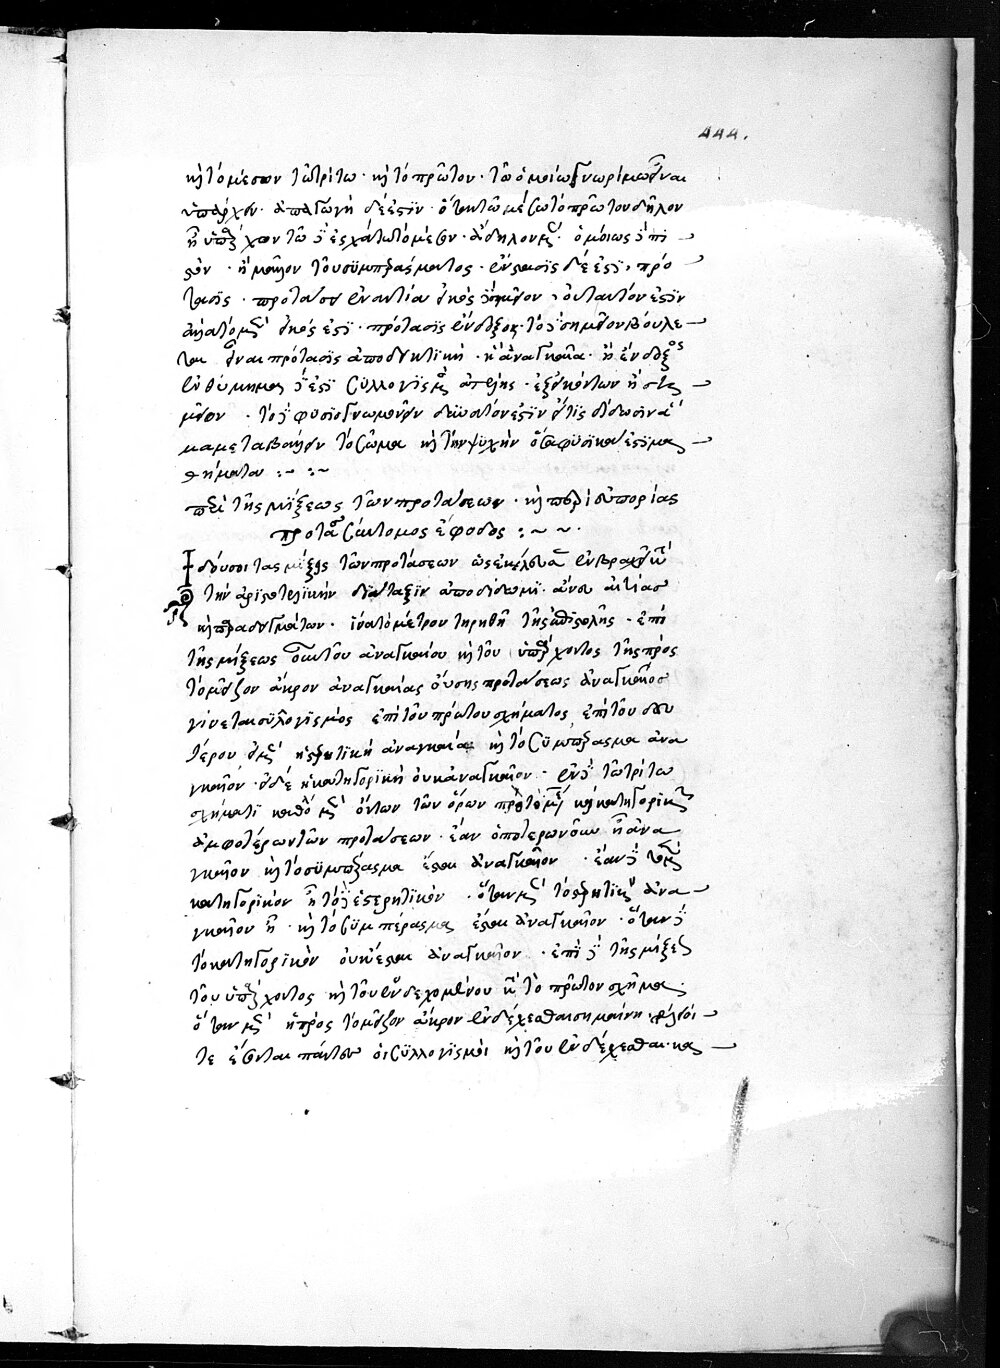 444.
καὶ τὸ μέσον τῷ τρίτῳ · καὶ τὸ πρῶτον · τῷ ὁμοίῳ γνωριμώτερον εἶναι
ὑπάρχον · ἀπαγωγὴ δέ ἐστιν · ὅταν τῷ μέσῳ τὸ πρῶτον δῆλον
ᾖ ὑπάρχον τῷ δ' ἐσχάτῳ τὸ μέσον · ἄδηλον μὲν · ὁμοίως δὲ πι
στὸν · ἢ μᾶλλον τοῦ συμπεράσματος · ἔνστασις δέ ἐστι, πρό
τασις · προτάσει ἐναντία εἰκὸς δὲ σημεῖον · οὐ ταυτόν ἐστιν
ἀλλὰ τὸ μὲν εἰκός ἐστι · πρότασις ἔνδοξος · τὸ δὲ σημεῖον βούλε
ται εἶναι πρότασις ἀποδεικτικὴ · ἢ ἀναγκαία · ἢ ἔνδοξος
ἐνθύμημα δέ ἐστι συλλογισμὸς ἀτελὴς · ἐξ εἰκότων ἢ ση
μείων · τὸ δὲ φυσιογνωμονεῖν δυνατόν ἐστιν εἴ τις δίδωσιν ἅ
μα μεταβάλλειν τὸ σῶμα καὶ τὴν ψυχὴν ὅσα φυσικά ἐστι πα
θήματα :~ :~
περὶ τῆς μίξεως τῶν προτάσεων · καὶ περὶ εὐπορίας
προτάσεων σύντομος ἔφοδος :~ ~ ·
Ἰδού σοι τὰς μίξεις τῶν προτάσεων ὡς ἐκέλευσας ἐν βραχεῖ κατὰ
τὴν ἀριστοτελικὴν διάταξιν ἀποδίδωμι · ἄνευ αἰτίας
καὶ παραδειγμάτων · ἵνα τὸ μέτρον τηρηθῇ τῆς ἐπιστολῆς · ἐπὶ
τῆς μίξεως τοῦ ἀναγκαίου καὶ τοῦ ὑπάρχοντος τῆς πρὸς
τὸ μεῖζον ἄκρον ἀναγκαίας οὔσης προτάσεως ἀναγκαῖος
γίνεται συλλογισμὸς ἐπὶ τοῦ πρώτου σχήματος ἐπὶ τοῦ δευ
τέρου εἰ μὲν ἡ στερητικὴ ἀναγκαία καὶ τὸ συμπέρασμα ἀνα
γκαῖον · εἰ δὲ ἡ κατηγορικὴ οὐκ ἀναγκαῖον · ἐν δὲ τῷ τρίτῳ
σχήματι καθόλου μὲν ὄντων τῶν ὅρων πρὸς τὸ μέσον καὶ κατηγορικῶν
ἀμφοτέρων τῶν προτάσεων · ἐὰν ὁποτερωνοῦν ᾖ ἀνα
γκαῖον καὶ τὸ συμπέρασμα ἔσται ἀναγκαῖον · ἐὰν δὲ τὸ μὲν
κατηγορικὸν ᾖ τὸ δὲ στερητικόν · ὅταν μὲν τὸ στερητικὸν ἀνα
γκαῖον ᾖ · καὶ τὸ συμπέρασμα ἔσται ἀναγκαῖον · ὅταν δὲ
τὸ κατηγορικὸν οὐκ ἔσται ἀναγκαῖον · ἐπὶ δὲ τῆς μίξεως
τοῦ ὑπάρχοντος καὶ τοῦ ἐνδεχομένου κατὰ τὸ πρῶτον σχῆμα
ὅταν μὲν ἡ πρὸς τὸ μεῖζον ἄκρον ἐνδέχεσθαι σημαίνῃ · τέλειοί
τε ἔσονται πάντες οἱ συλλογισμοὶ καὶ τοῦ ἐνδέχεσθαι · κα